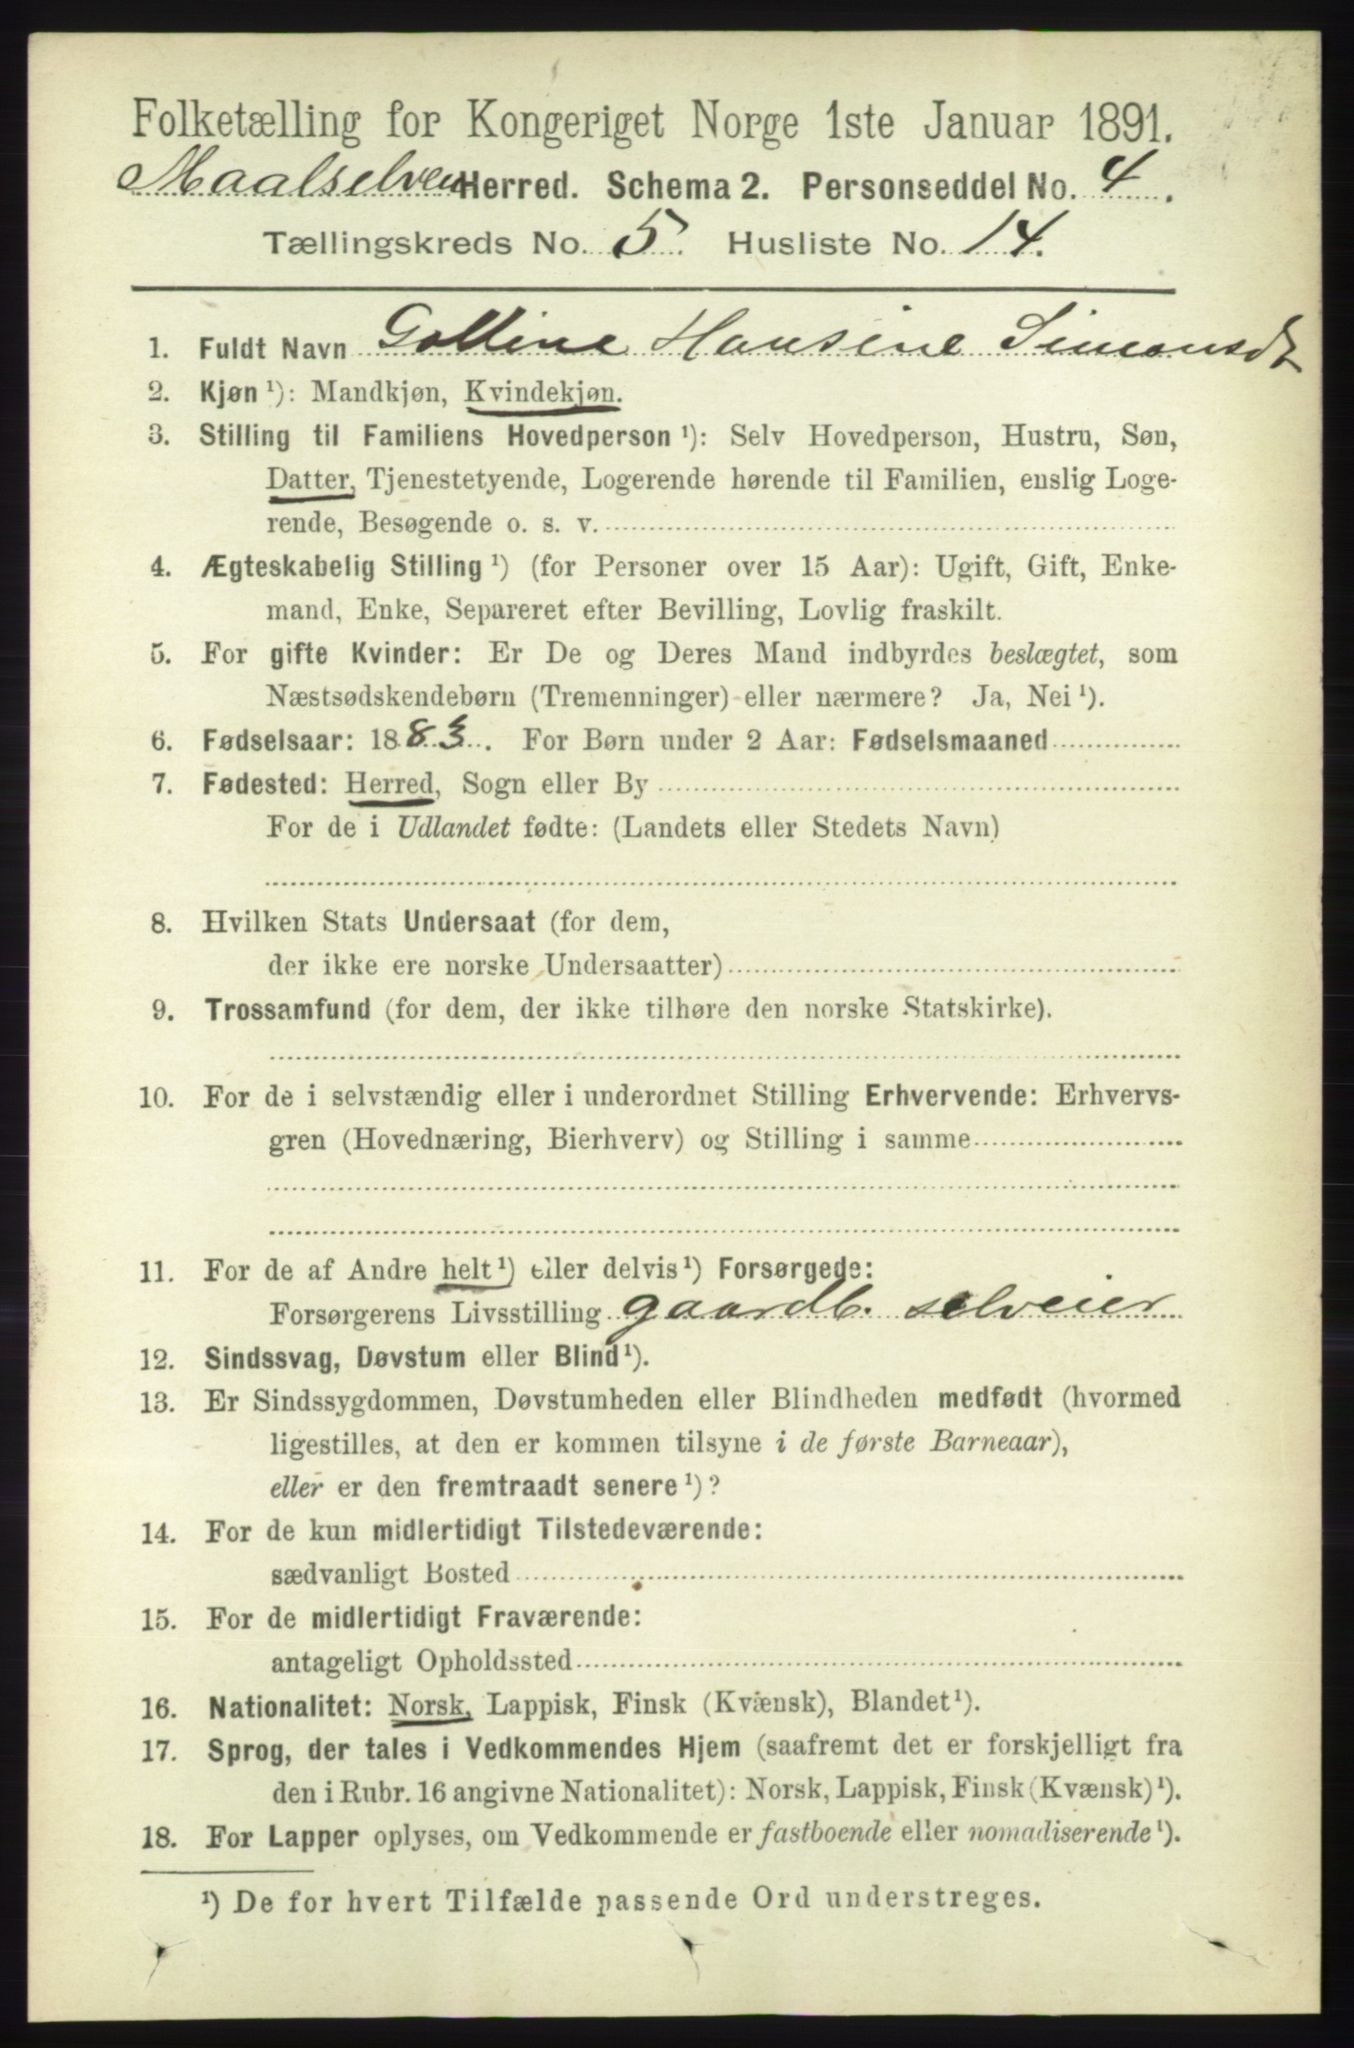 Folketælling for Kongeriget Norge 1ste Januar 1891.
Maalselven Herred. Schema 2. Personseddel No. 4.
Tællingskreds No. 5. Husliste No. 14.
1. Fuldt Navn Hansine Simonsdt
2. Kjøn ¹): Mandkjøn, Kvindekjøn.
3. Stilling til Familiens Hovedperson ¹): Selv Hovedperson, Hustru, Søn,
Datter, Tjenestetyende, Logerende hørende til Familien, enslig Loge-
rende, Besøgende o. s. v.
4. Ægteskabelig Stilling ¹) (for Personer over 15 Aar): Ugift, Gift, Enke-
mand, Enke, Separeret efter Bevilling, Lovlig fraskilt.
5. For gifte Kvinder: Er De og Deres Mand indbyrdes beslægtet, som
Næstsødskendebørn (Tremenninger) eller nærmere? Ja, Nei ¹).
6. Fødselsaar: 1883. For Børn under 2 Aar: Fødselsmaaned
7. Fødested: Herred, Sogn eller By
For de i Udlandet fødte: (Landets eller Stedets Navn)
8. Hvilken Stats Undersaat (for dem,
der ikke ere norske Undersaatter)
9. Trossamfund (for dem, der ikke tilhøre den norske Statskirke).
10. For de i selvstændig eller i underordnet Stilling Erhvervende: Erhvervs-
gren (Hovednæring, Bierhverv) og Stilling i samme
11. For de af Andre helt ¹) eller delvis ¹) Forsørgede:
Forsørgerens Livsstilling gaardb. selveier
12. Sindssvag, Døvstum eller Blind ¹).
13. Er Sindssygdommen, Døvstumheden eller Blindheden medfødt (hvormed
ligestilles, at den er kommen tilsyne i de første Barneaar),
eller er den fremtraadt senere ¹)?
14. For de kun midlertidigt Tilstedeværende:
sædvanligt Bosted
15. For de midlertidigt Fraværende:
antageligt Opholdssted
16. Nationalitet: Norsk, Lappisk, Finsk (Kvænsk), Blandet ¹).
17. Sprog, der tales i Vedkommendes Hjem (saafremt det er forskjelligt fra
den i Rubr. 16 angivne Nationalitet): Norsk, Lappisk, Finsk (Kvænsk) ¹).
18. For Lapper oplyses, om Vedkommende er fastboende eller nomadiserende ¹).
¹) De for hvert Tilfælde passende Ord understreges.